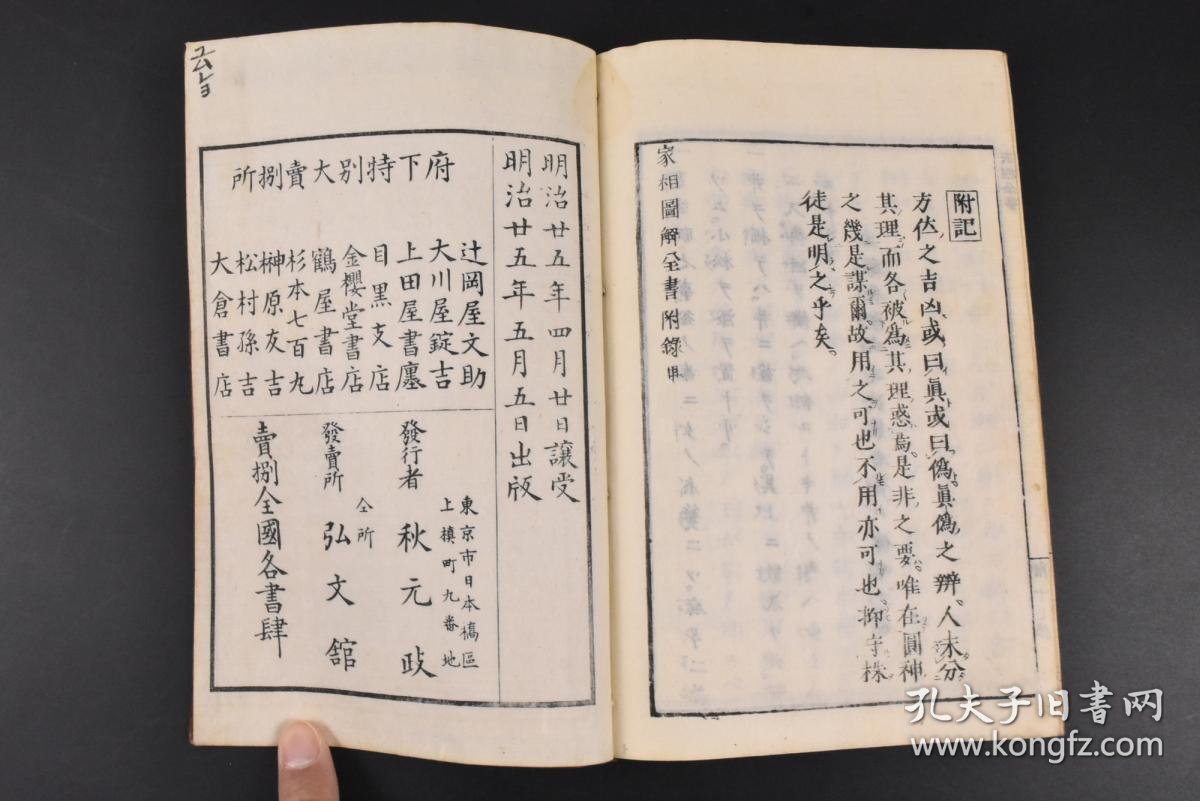 附記
方位之吉凶或曰眞或曰僞眞僞之辨人未分
其理而各被爲其理惑焉是非之要唯在圓神
之幾是謀爾故用之可也不用亦可也抑守株
徒是明之乎矣
家相圖解全書附錄
明治廿五年四月廿日讓受
明治廿五年五月五日出版
府下特別大賣捌所
辻岡屋文助
大川屋錠吉
上田屋書店
目黑支店
金櫻堂書店
鶴屋書店
杉本七百九
榊原友吉
松村孫吉
大倉書店
東京市日本橋區
上槇町九番地
發行者 秋元
仝所
發賣所 弘文舘
賣捌全國各書肆
孔夫子旧书网
www.kongfz.com